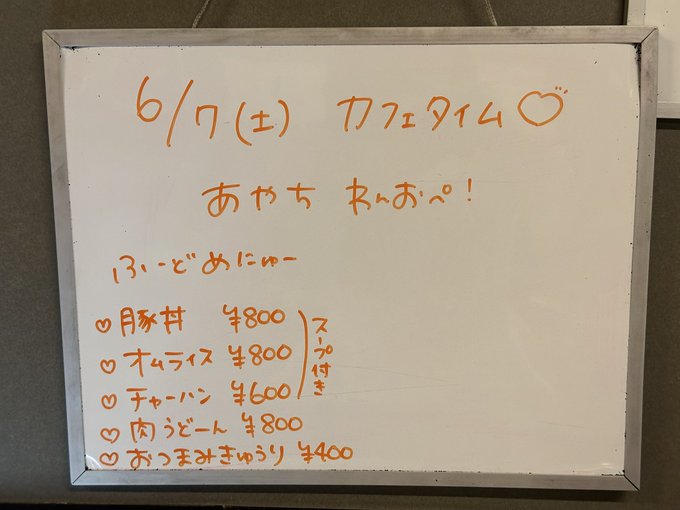 6/7(土) カフェタイム♡
あやち わんおぺ!
ふーどめにゅー
♡豚丼 ¥800
♡オムライス ¥800
♡チャーハン ¥600
スープ付き
♡肉うどーん ¥800
♡おつまみきゅうり ¥400